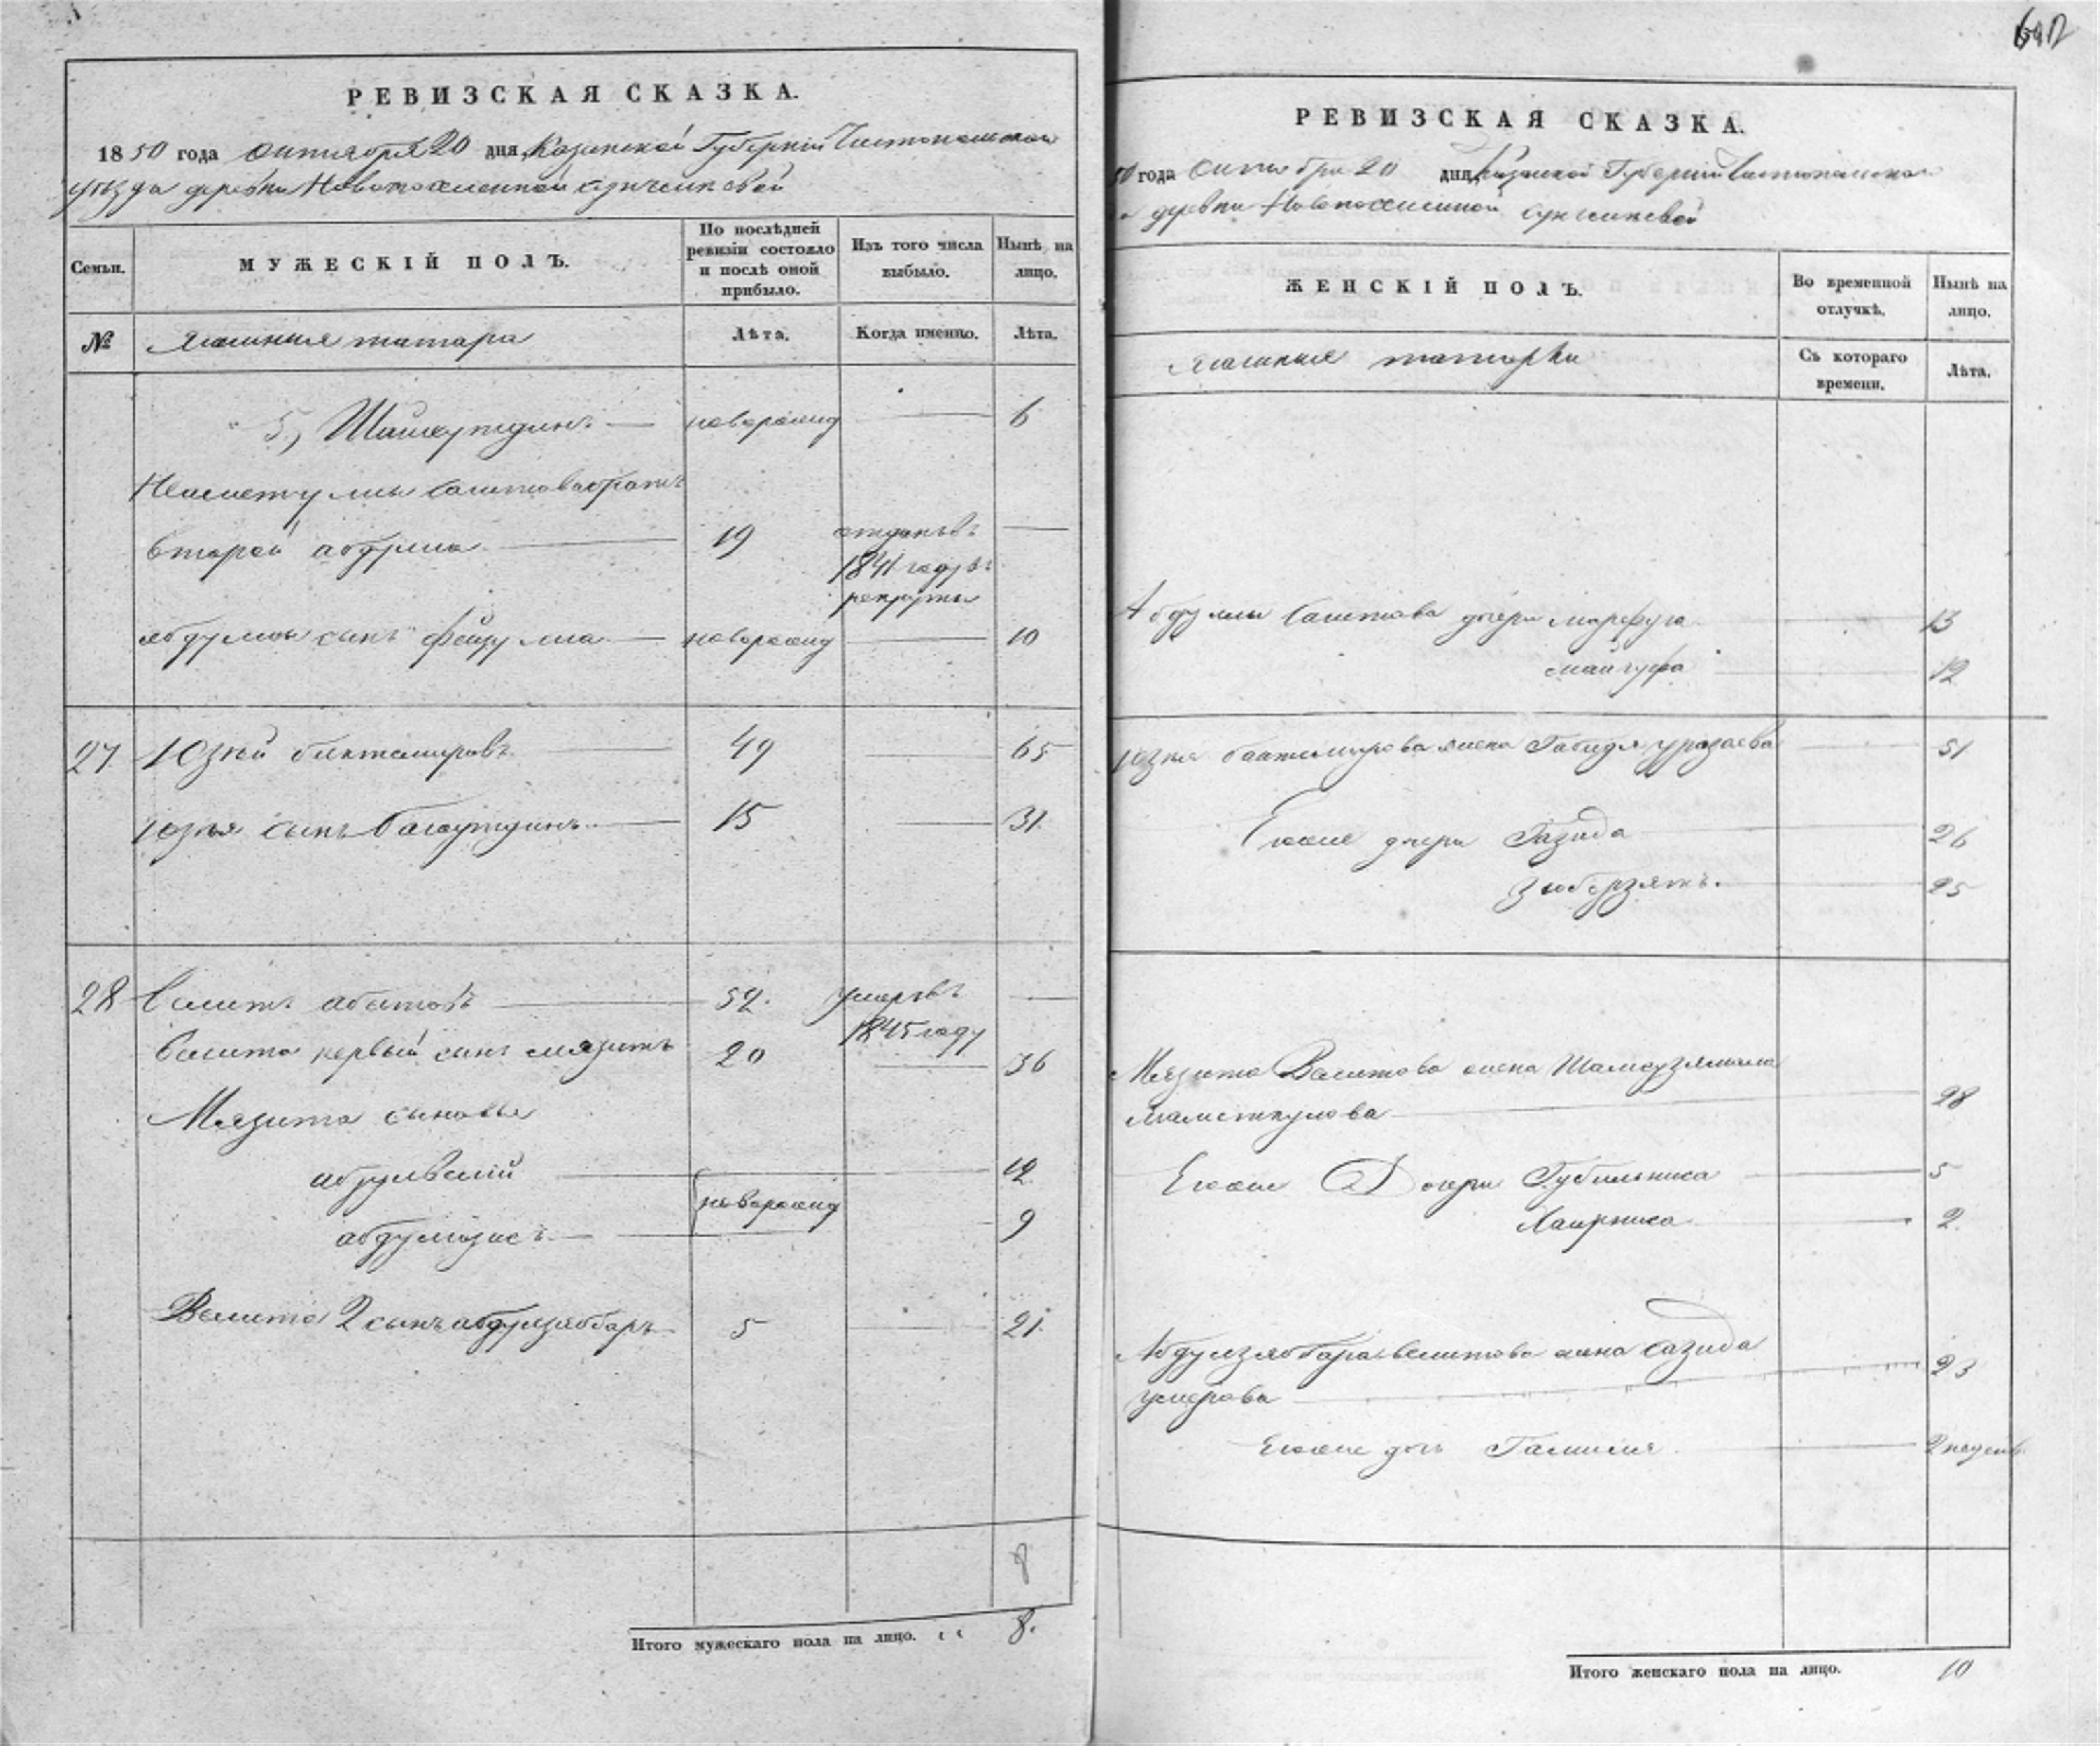 РЕВИЗСКАЯ СКАЗКА.
1850 года октября 20 дня, Казанской Губернии Чистопольскаго
уезда деревни Новопоселенной
Семьи.
МУЖЕСКІЙ ПОЛЪ.
По послѣдней ревизіи состояло и послѣ оной прибыло.
Изъ того числа выбыло.
Нынѣ на лицо.
№
Ясашные татара
Лѣта.
Когда именно.
Лѣта.
5, новорожд 6
брать
второй абдулла 19 отданъ въ
1841 году въ
рекруты
абдуллы сынъ Фейзулла новорожд 10
27 Юзѣй биктемировъ 49 65
Юзѣя сынъ багаутдинъ 15 31
28 Валитъ абитовъ 52. умеръ въ
1845 году
Валита первый сынъ мязитъ 20 36
Мязита сыновья
абдулвалій 12
новорожд
9
Валита 2 сынъ абдулзяббаръ 5 21.
8
Итого мужескаго пола на лицо. 8.
РЕВИЗСКАЯ СКАЗКА.
50 года Октября 20 дня, Казанской Губерніи Чистопольскаго
деревни Новопоселенной
ЖЕНСКІЙ ПОЛЪ.
Во временной отлучкѣ.
Нынѣ на лицо.
Ясашные татарки
Съ котораго времени.
Лѣта.
Абдуллы дочери марфуга 13
12
Юзѣя бактемирова жена Габида уразаева 51
Егоже дочери Газида 26
25
Мязита Валитова жена
маметкулова 28
Егоже Дочери 5
Хаирниса 2.
Абдулзяббара валитова жена сазида
умерова 23
Егоже дочь Галимя 2 недель
Итого женскаго пола на лицо. 10